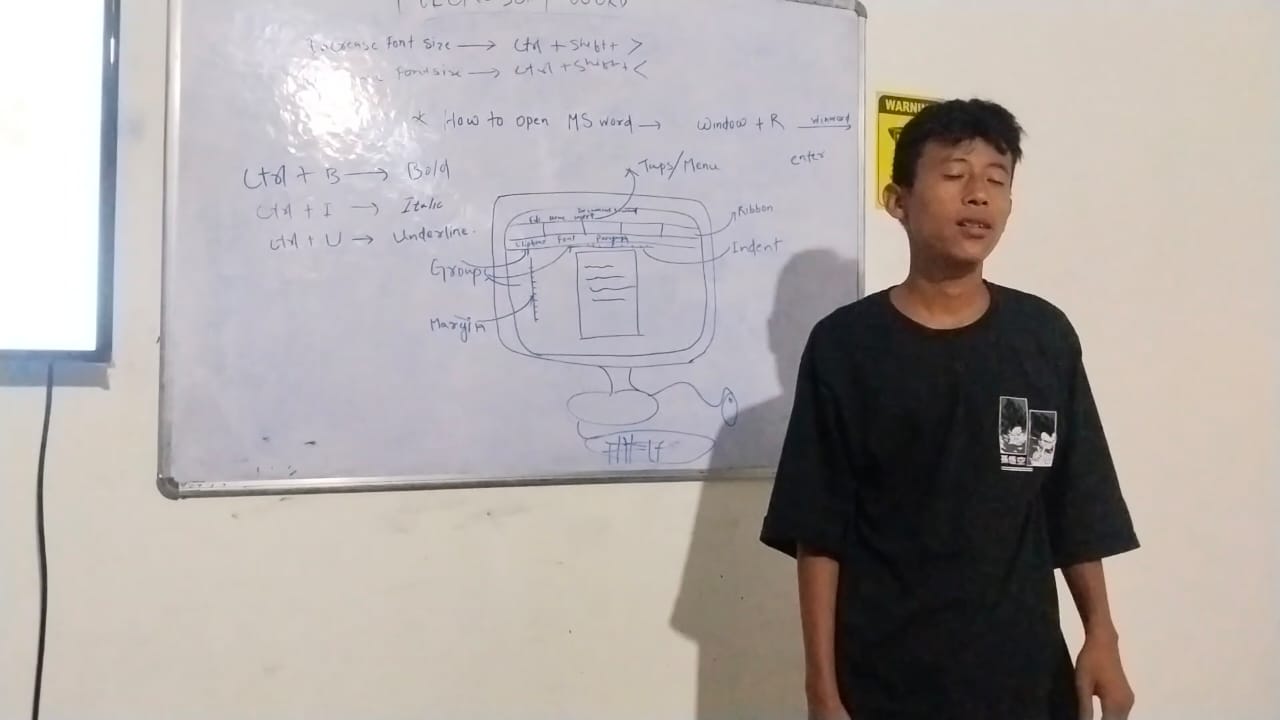 Increase Font Size → Ctrl + Shift + >
Fontsize → Ctrl + Shift + <
* How to open MS word → Window + R winword →
enter
Ctrl + B → Bold
Ctrl + I → Italic
Ctrl + U → Underline
Taps/Menu
Ribbon
Font Paragraph
Indent
Groups
Margin
WARNIN
孫悟空